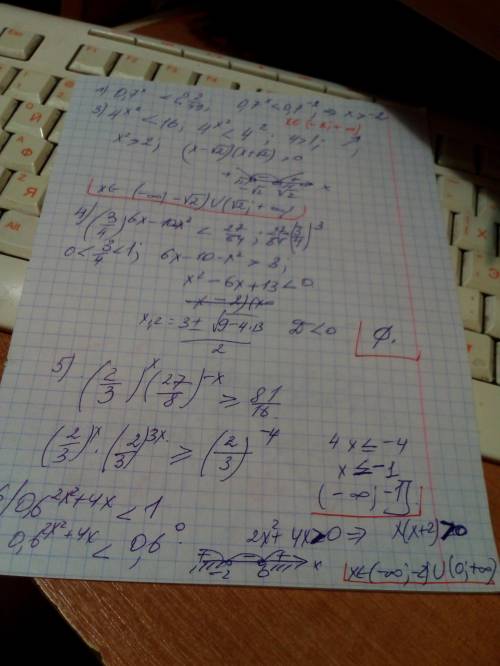 3) 4^{x²} < 16; 4^{x²} < 4²; 4>1; ↑
x² > 2; (x-√2)(x+√2) > 0
-√2 √2 x
x∈ (-∞; -√2)∪(√2; +∞)
4) (3/4)^{6x-10-x²} < 27/64; 27/64 = (3/4)³
0 < 3/4 < 1; 6x-10-x² > 3;
x² - 6x + 13 < 0
x₁,₂ = 3 ± √(9-4·13) / 2 D < 0 ∅.
5) (2/3)^x · (27/8)^{-x} ≥ 81/16
(2/3)^x · (2/3)^{3x} ≥ (2/3)^{-4}
4x ≤ -4
x ≤ -1
(-∞; -1]
6) 0,6^{2x²+4x} < 1
0,6^{2x²+4x} < 0,6^0
2x² + 4x > 0 ⇒ x(x+2) > 0
+ - + -2 0 x
x∈(-∞; -2)∪(0; +∞)